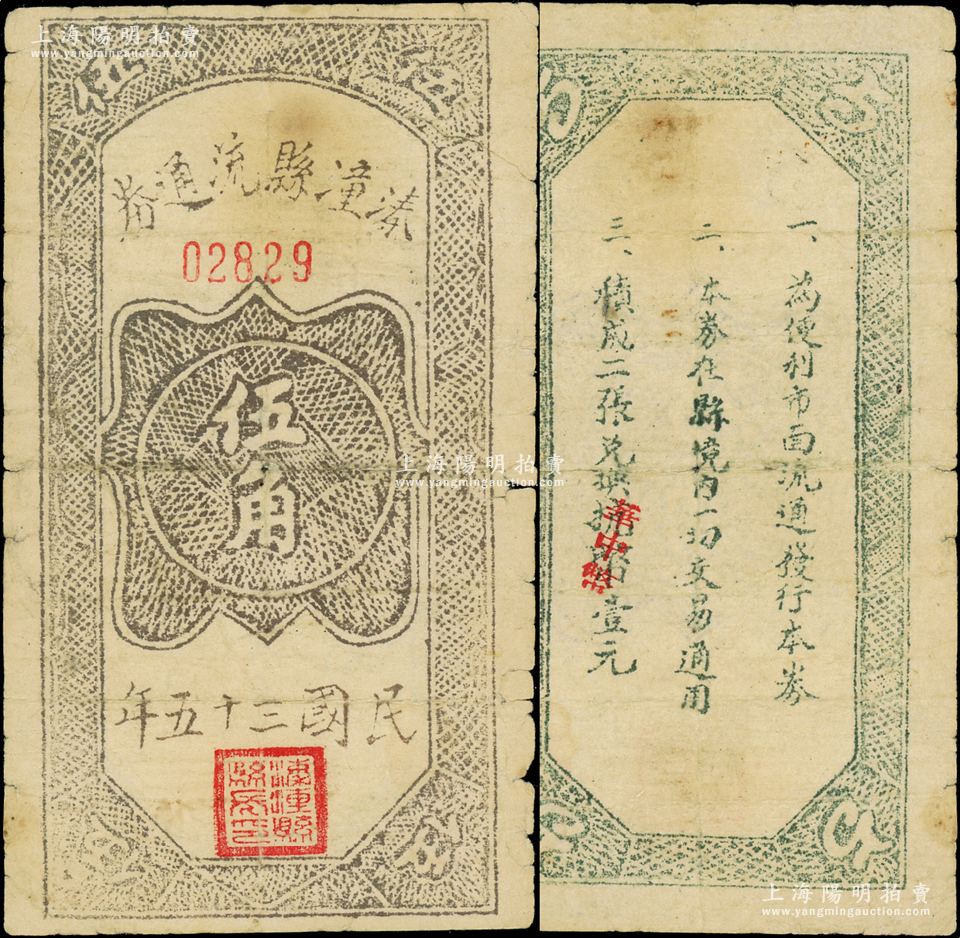 上海陽明拍賣
www.yangmingauction.com
伍 伍
溱潼縣流通券
02829
伍角
民國三十五年
角
一、為便利市面流通發行本券
二、本券在縣境內一切交易通用
三、積成二張兌換
壹元
華中幣
上海陽明拍賣
www.yangmingauction.com
上海陽明拍賣
www.yangmingauction.com